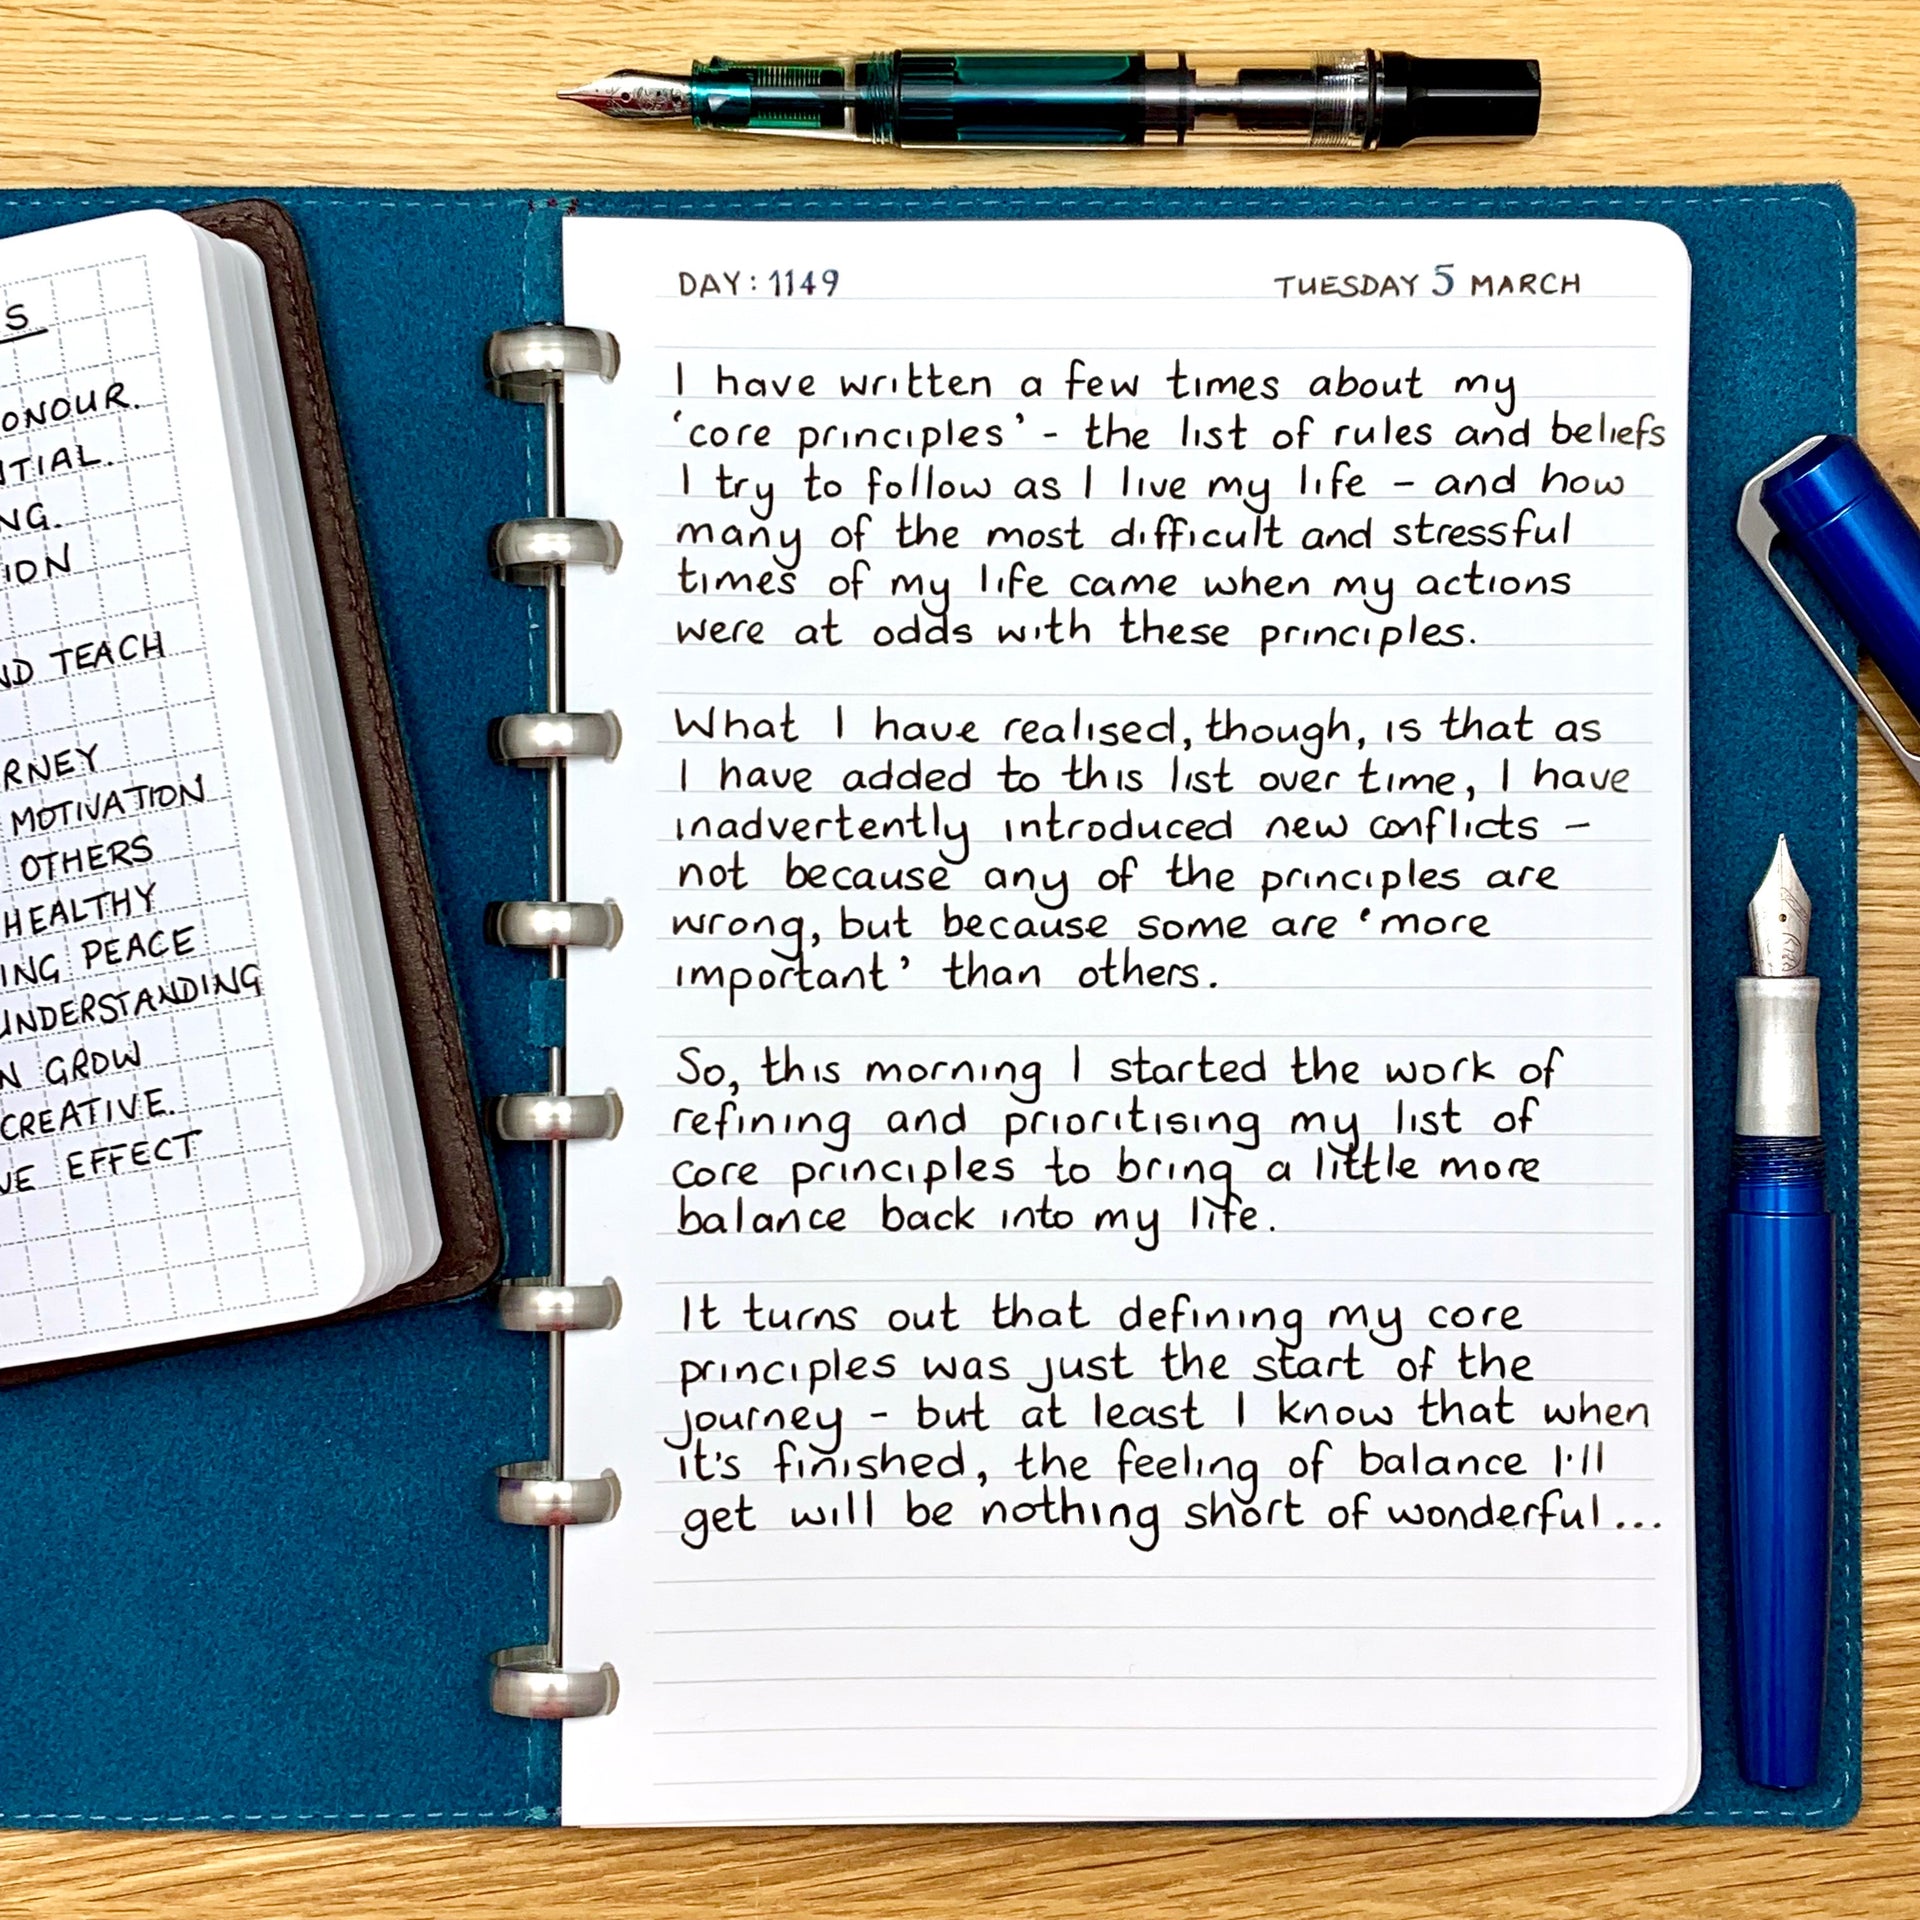 S
ONOUR.
NTIAL.
NG.
ION
ND TEACH
RNEY
MOTIVATION
OTHERS
HEALTHY
ING PEACE
UNDERSTANDING
N GROW
CREATIVE.
VE EFFECT
DAY: 1149 TUESDAY 5 MARCH
I have written a few times about my
'core principles' - the list of rules and beliefs
I try to follow as I live my life - and how
many of the most difficult and stressful
times of my life came when my actions
were at odds with these principles.
What I have realised, though, is that as
I have added to this list over time, I have
inadvertently introduced new conflicts -
not because any of the principles are
wrong, but because some are 'more
important' than others.
So, this morning I started the work of
refining and prioritising my list of
core principles to bring a little more
balance back into my life.
It turns out that defining my core
principles was just the start of the
journey - but at least I know that when
it's finished, the feeling of balance I'll
get will be nothing short of wonderful...